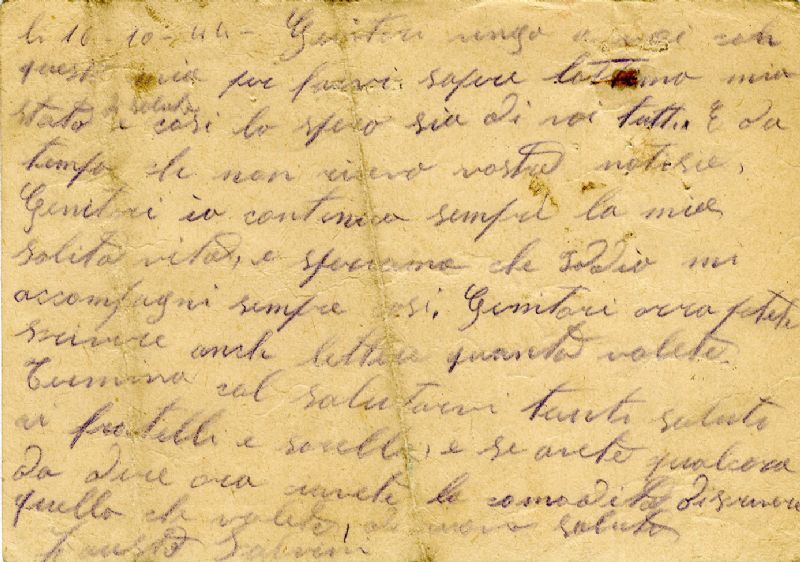 li 16-10-44- Genitori vengo a voi con
questa mia per farvi sapere lottimo mio
stato di salute e cosi lo spero sia di voi tutti. E da
tempo che non ricevo vostre notisie,
Genitori io continuo sempre la mia
solita vita, e speriamo che iddio mi
accompagni sempre cosi. Genitori ora potete
scrivere anche lettere quante volete.
Termino col salutarvi tanti saluti
ai fratelli e sorelle, e se avete qualcosa
da dire ora avete la comodità di scrivere
quello che volete, di nuovo saluto
Fausto Salvini